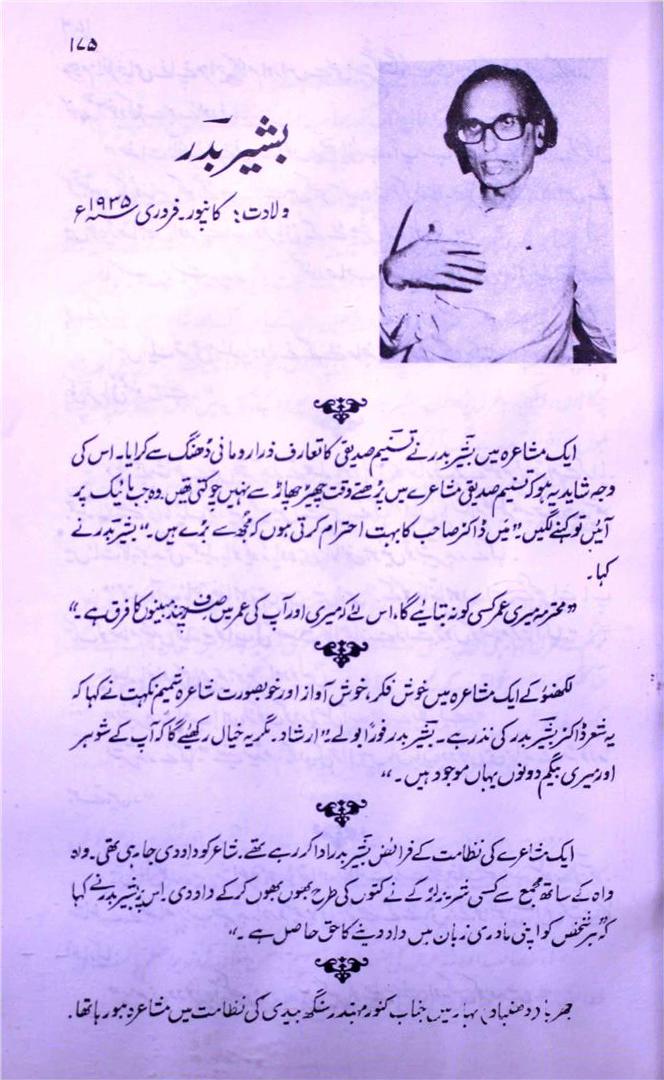 ۱۷۵
بشیر بدر
ولادت: کانپور۔ فروری ۱۹۳۵ء
ایک مشاعرہ میں بشیر بدر نے تسنیم صدیقی کا تعارف ذرا رومانی ڈھنگ سے کرایا۔ اس کی
وجہ شاید یہ ہو کہ تسنیم صدیقی مشاعرے میں پڑھتے وقت چھیڑ چھاڑ سے نہیں چوکتی تھیں۔ وہ جب مائیک پر
آئیں تو کہنے لگیں "میں ڈاکٹر صاحب کا بہت احترام کرتی ہوں کہ مجھ سے بڑے ہیں۔" بشیر بدر نے
کہا۔
"محترمہ میری عمر کسی کو نہ بتایئے گا، اس لئے کہ میری اور آپ کی عمر میں صرف چند مہینوں کا فرق ہے۔"
لکھنؤ کے ایک مشاعرہ میں خوش فکر، خوش آواز اور خوبصورت شاعرہ نسیم نکہت نے کہا کہ
یہ شعر ڈاکٹر بشیر بدر کی نذر ہے۔ بشیر بدر فوراً بولے "ارشاد۔ مگر یہ خیال رکھیئے گا کہ آپ کے شوہر
اور میری بیگم دونوں یہاں موجود ہیں۔"
ایک مشاعرے کی نظامت کے فرائض بشیر بدر ادا کر رہے تھے۔ شاعر کو داد دی جا رہی تھی۔ واہ
واہ کے ساتھ مجمع سے کسی شریر لڑکے نے کتوں کی طرح بھوں بھوں کر کے داد دی۔ اس پر بشیر بدر نے کہا
کہ "ہر شخص کو اپنی مادری زبان میں داد دینے کا حق حاصل ہے۔"
جھریا، دھنباد، بہار میں جناب کنور مہندر سنگھ بیدی کی نظامت میں مشاعرہ ہو رہا تھا۔